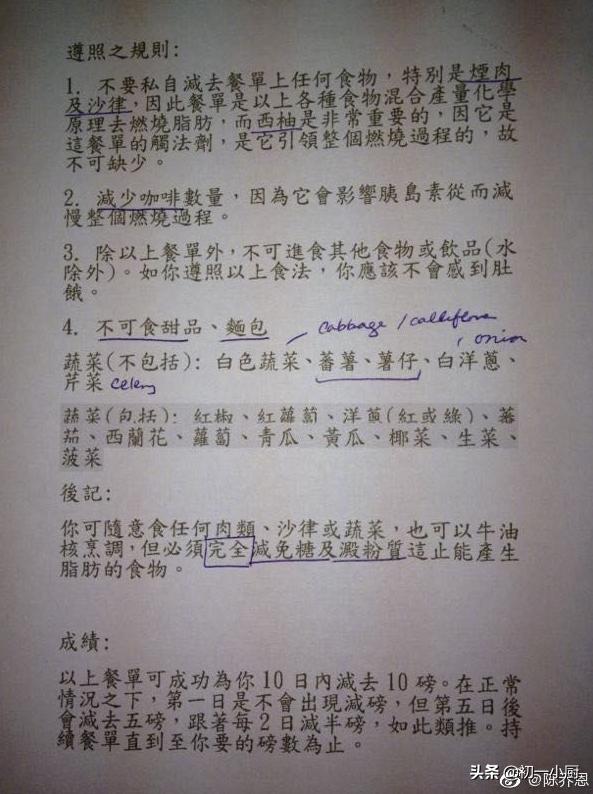 遵照之規則:
1. 不要私自減去餐單上任何食物，特別是煙肉
及沙律，因此餐單是以上各種食物混合產量化學
原理去燃燒脂肪，而西柚是非常重要的，因它是
這餐單的觸法劑，是它引領整個燃燒過程的，故
不可缺少。
2. 減少咖啡數量，因為它會影響胰島素從而減
慢整個燃燒過程。
3. 除以上餐單外，不可進食其他食物或飲品(水
除外)。如你遵照以上食法，你應該不會感到肚
餓。
4. 不可食甜品、麵包
cabbage / calliflora
, onion
蔬菜(不包括): 白色蔬菜、蕃薯、薯仔、白洋蔥、
芹菜 celery
蔬菜(包括): 紅椒、紅蘿蔔、洋蔥(紅或綠)、蕃
茄、西蘭花、蘿蔔、青瓜、黃瓜、椰菜、生菜、
菠菜
後記:
你可隨意食任何肉類、沙律或蔬菜，也可以牛油
核烹調，但必須完全減免糖及澱粉質這止能產生
脂肪的食物。
成績:
以上餐單可成功為你10日內減去10磅。在正常
情況之下，第一日是不會出現減磅，但第五日後
會減去五磅，跟著每2日減半磅，如此類推。持
續餐單直到至你要的磅數為止。
头条 @初一小厨
@陈乔恩